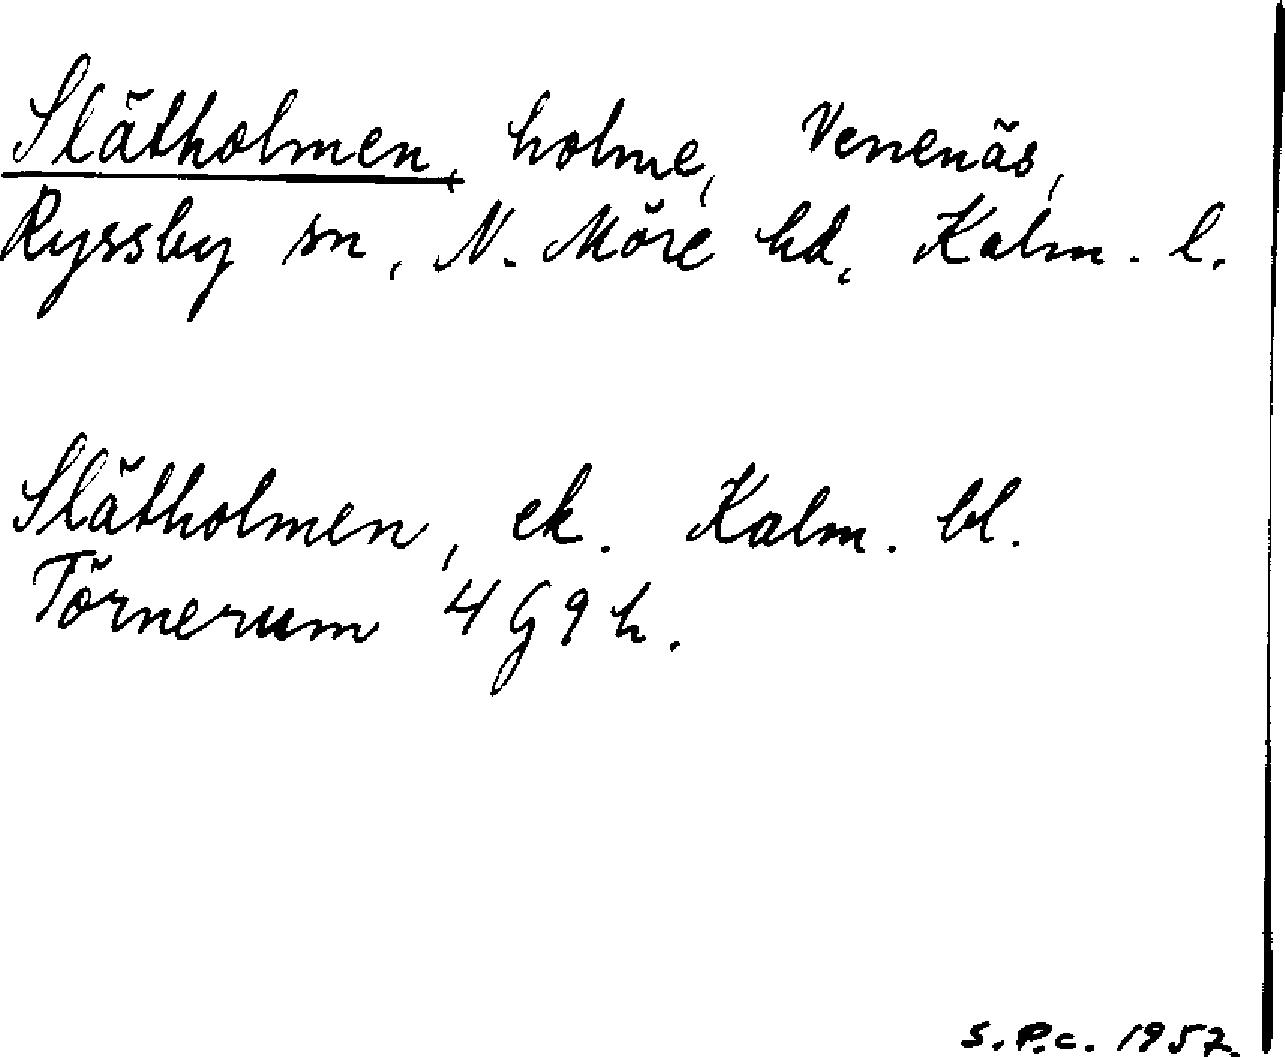 Slätholmen, holme, Venenäs,
Ryssby sn, N. Möre hd, Kalm. l.
Slätholmen, ek. Kalm. bl.
Törnerum 4 G 9 h.
S.P.C. 1952.